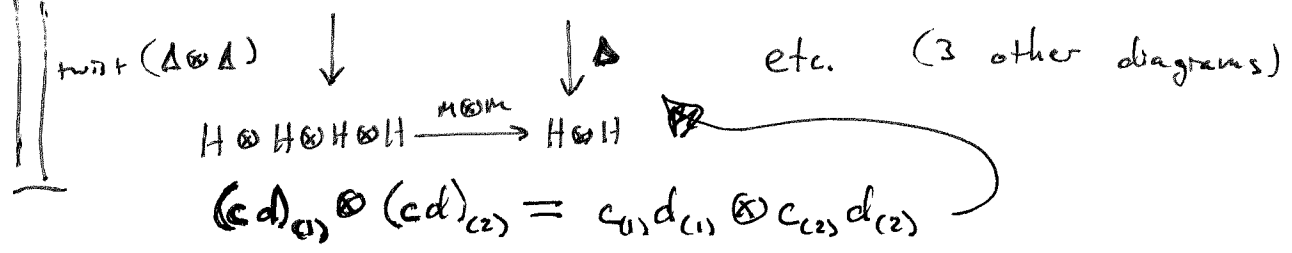 twist (Δ⊗Δ) ↓ ↓ Δ etc. (3 other diagrams)
H⊗H⊗H⊗H —m⊗m→ H⊗H
(cd)₍₁₎ ⊗ (cd)₍₂₎ = c₍₁₎d₍₁₎ ⊗ c₍₂₎d₍₂₎